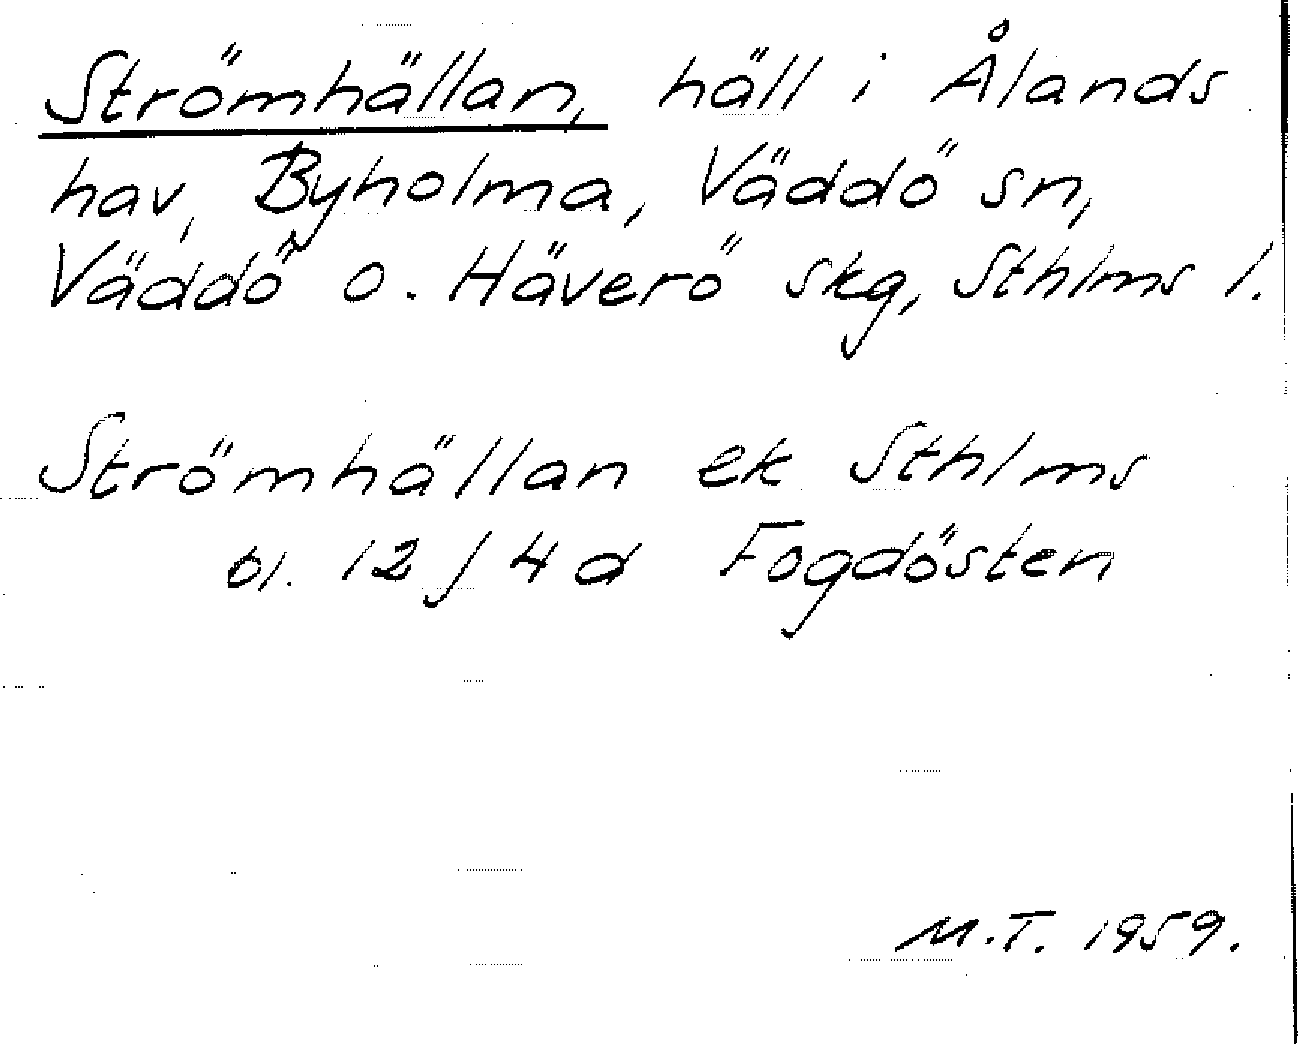 Strömhällan, häll i Ålands
hav, Byholma, Väddö sn,
Väddö o. Häverö skg, Sthlms l.
Strömhällan ek Sthlms
bl. 12 J 4 d Fogdösten
M.T. 1959.